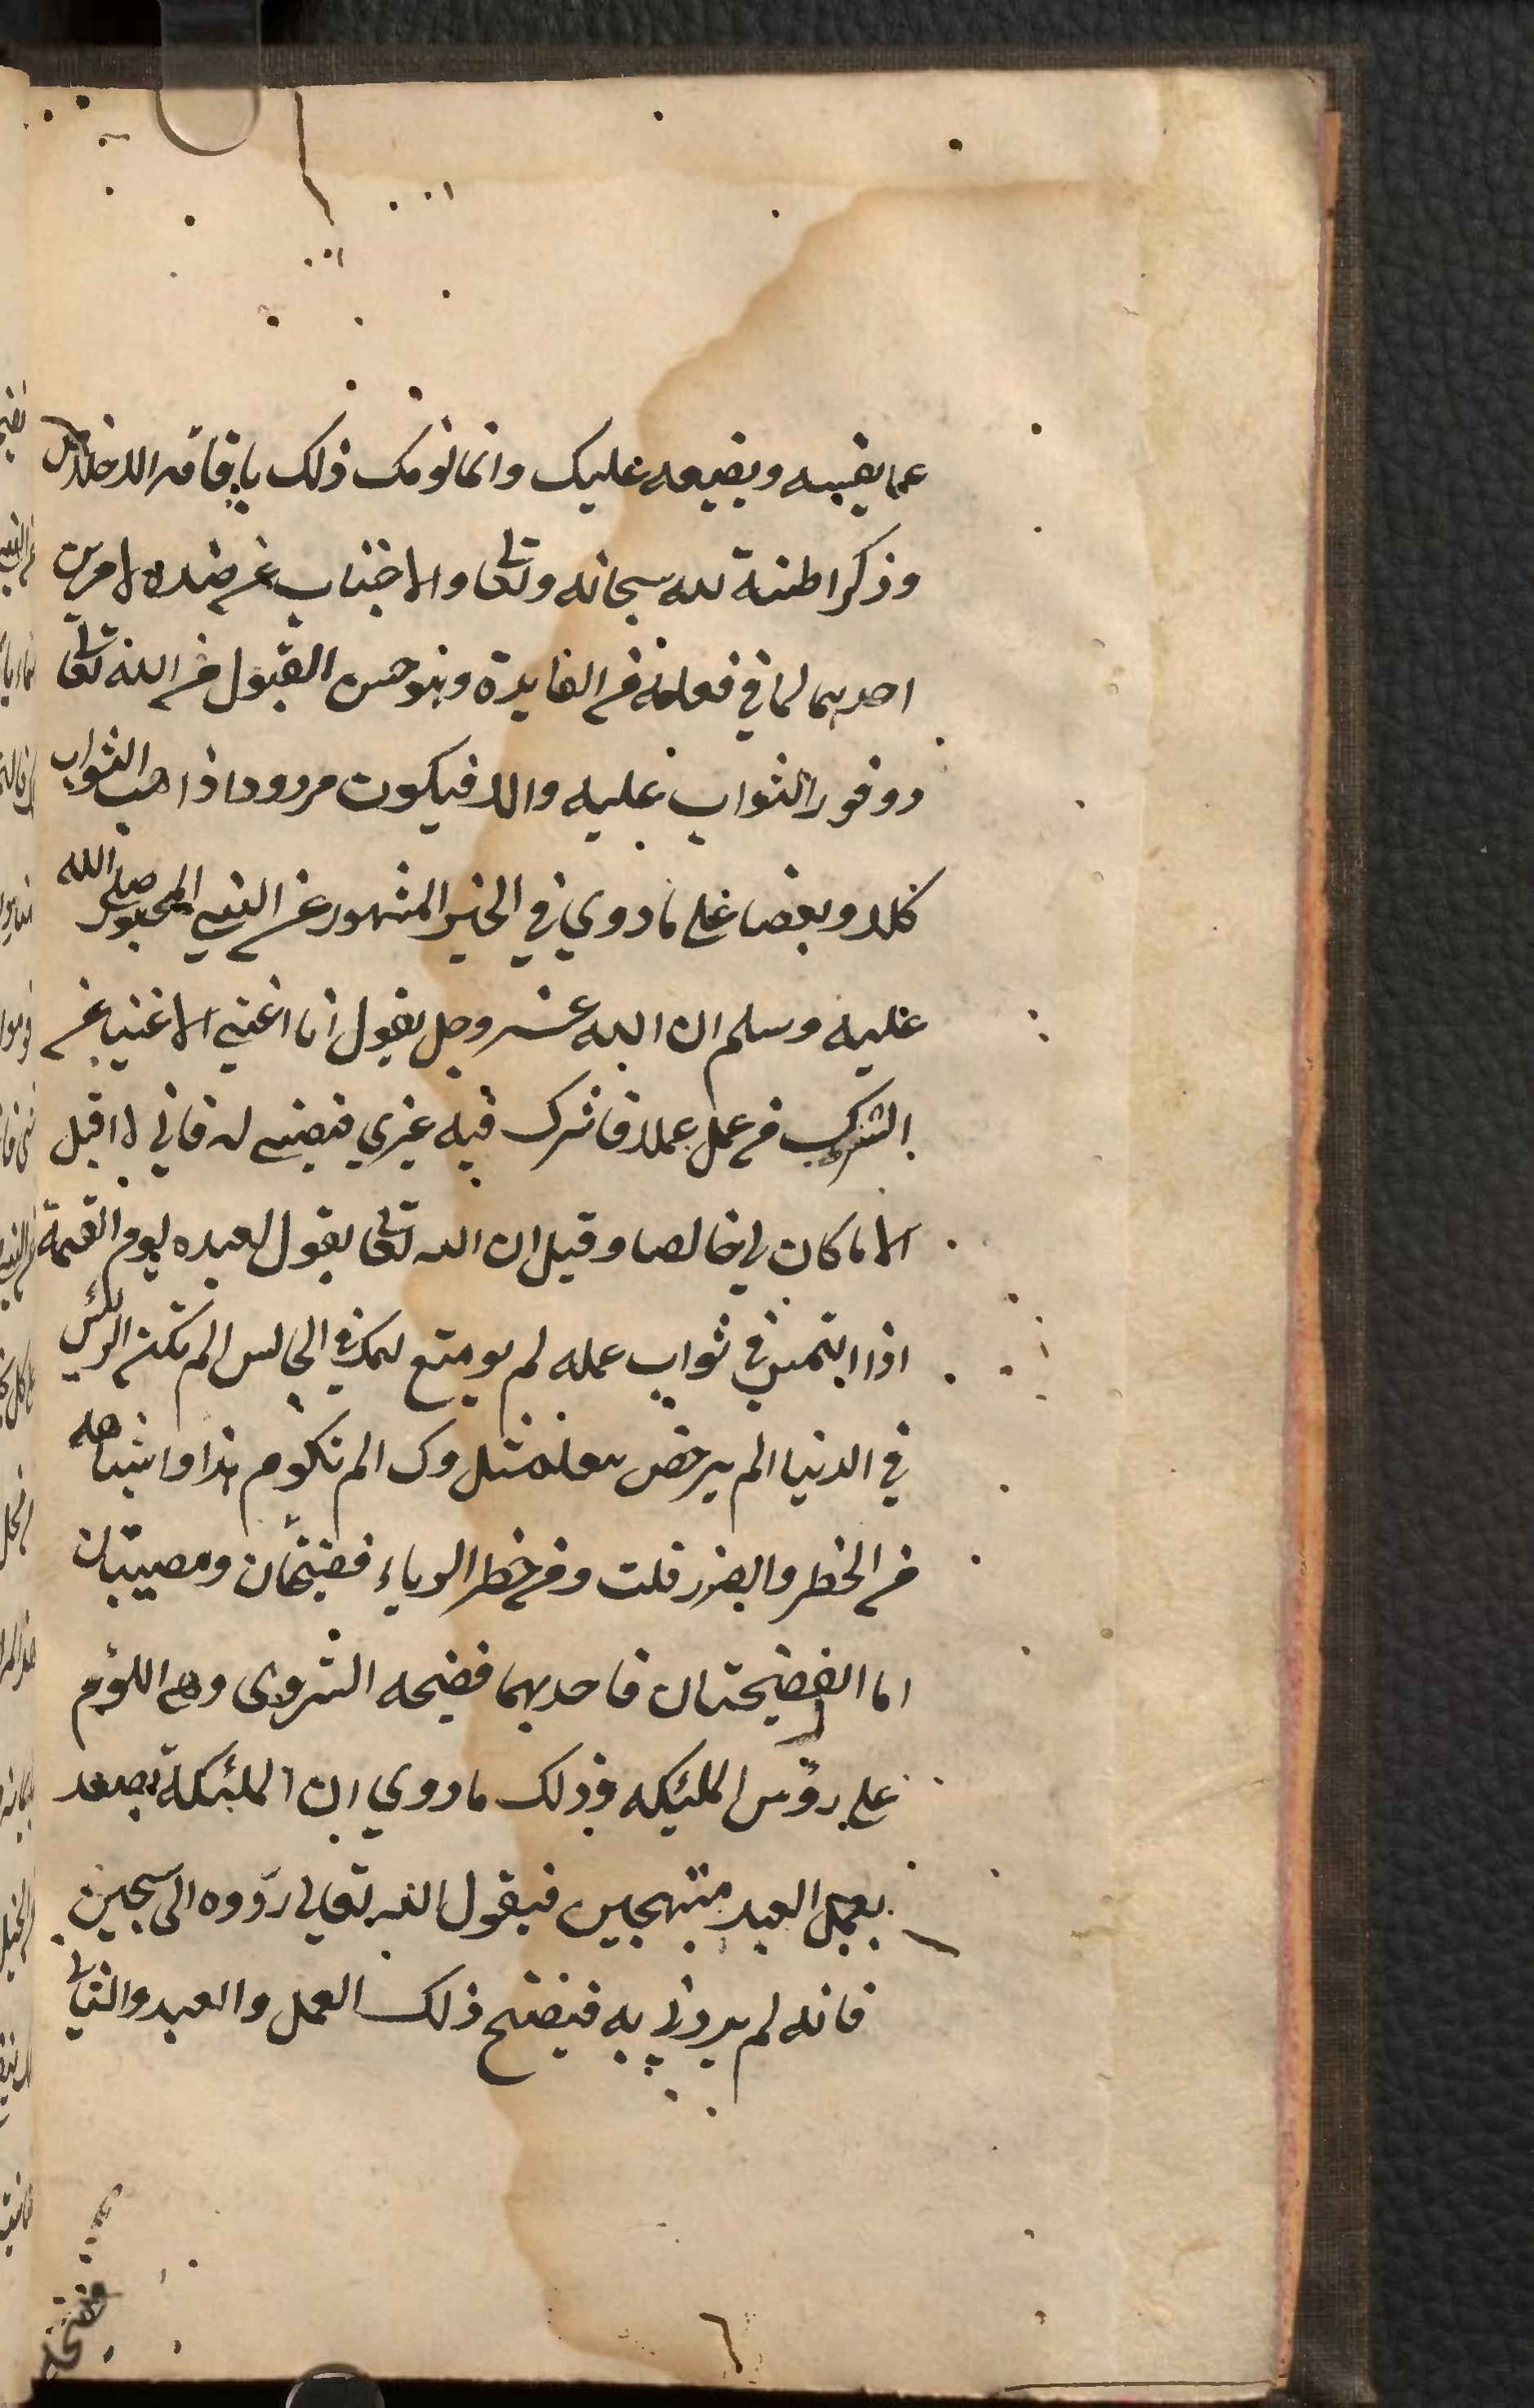 عما يفسده ويضيعه عليك وانما لزمك ذلك باقامة الاخلاص
وذكر المنة لله سبحانه وتعالى والاجتناب عن ضده لامرين
احدهما لما في فعله من الفايدة وهو حسن القبول من الله تعالى
ووفور الثواب عليه والا فيكون مردودا ذاهب الثواب
كلا وبعضا على ما روي في الخبر المشهور عن النبي المحبور صلى الله
عليه وسلم ان الله عز وجل يقول انا اغني الاغنيا عن
الشرك من عمل عملا فاشرك فيه غيري فنصيبي له فاني لا اقبل
الا ما كان لي خالصا وقيل ان الله تعالى يقول لعبده يوم القيمة
اذا التمس ثواب عمله لم يوسع لك في المجالس الم تكن الرئيس
في الدنيا الم يرخص الم تكرم هذا واشباهه
من الخطر والضرر قلت ومن خطر الرياء فضيحتان ومصيبتان
اما الفضيحتان فاحديهما فضيحه السر وهي اللؤم
على رؤس الملئكه وذلك ما روي ان الملئكة يصعد
بعمل العبد مبتهجين فيقول الله تعالى ردوه الى سجين
فانه لم يردني به فيفتضح ذلك العمل والعبد والثاني
٦